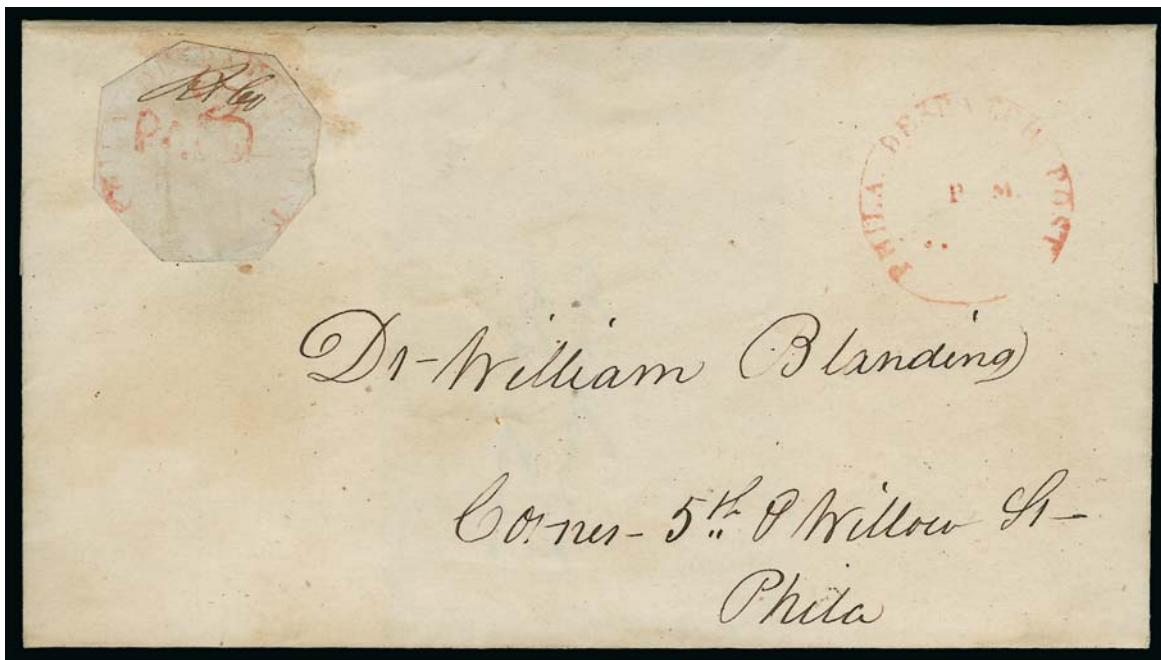 R & Co
PAID
PHILA DESPATCH POST
P M.
Dr - William Blanding
Corner - 5th & Willow St -
Phila